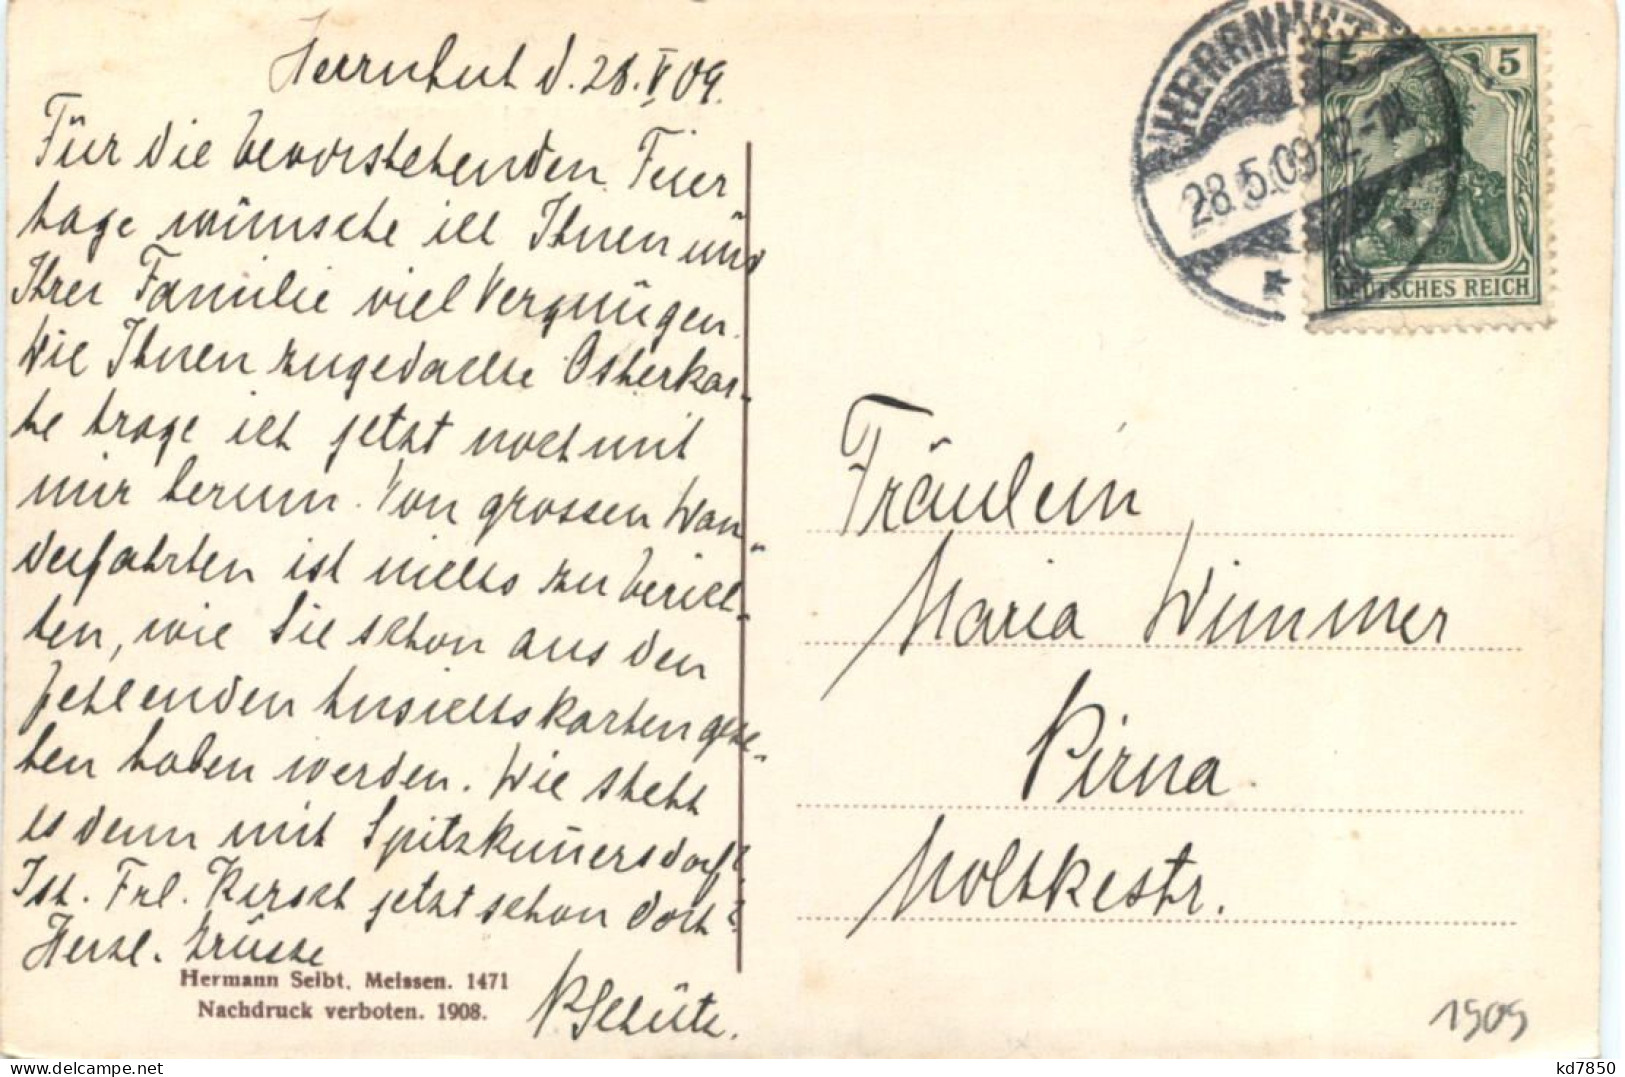 Herrnhut d. 28. V 09.
Für die bevorstehenden Feier-
tage wünsche ich Ihnen und
Ihrer Familie viel Vergnügen.
Die Ihnen zugedachte Osterkar-
te trage ich jetzt noch mit
mir herum. Von grossen Wan-
derfahrten ist nichts zu berich-
ten, wie Sie schon aus den
fehlenden Ansichtskarten gese-
hen haben werden. Wie steht
es denn mit Spitzkunnersdorf?
Ist Frl. Kirsch jetzt schon dort?
Herzl. Grüsse
Schütz.
Hermann Seibt, Meissen. 1471
Nachdruck verboten. 1908.
HERRNHUT
28.5.09.12-
5
DEUTSCHES REICH
Fräulein
Maria Wimmer
Pirna
Moltkestr.
1909
kd7850